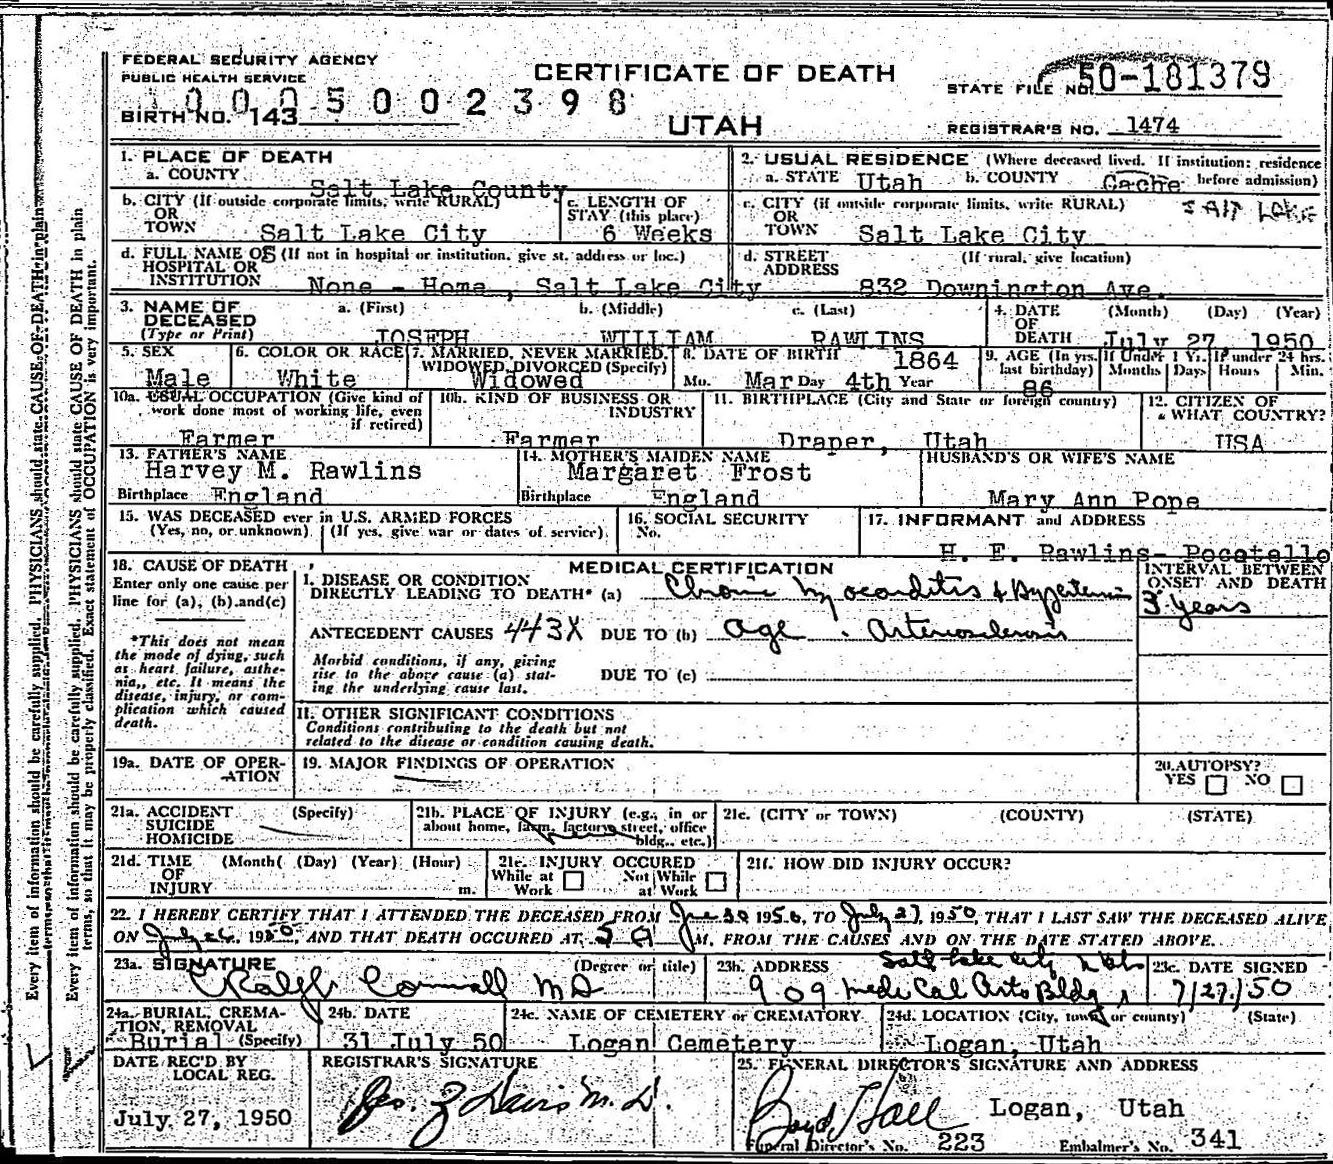 FEDERAL SECURITY AGENCY
PUBLIC HEALTH SERVICE
CERTIFICATE OF DEATH
UTAH
STATE FILE NO. 50-181379
0005002398
BIRTH NO. 143
REGISTRAR'S NO. 1474
1. PLACE OF DEATH
a. COUNTY
Salt Lake County
2. USUAL RESIDENCE (Where deceased lived. If institution: residence before admission)
a. STATE Utah b. COUNTY Cache
SALT LAKE
b. CITY (If outside corporate limits, write RURAL)
OR
TOWN Salt Lake City
c. LENGTH OF
STAY (this place)
6 Weeks
c. CITY (if outside corporate limits, write RURAL)
OR
TOWN Salt Lake City
d. FULL NAME OF (If not in hospital or institution, give st. address or loc.)
HOSPITAL OR
INSTITUTION
None - Home, Salt Lake City
d. STREET
ADDRESS
(If rural, give location)
832 Downington Ave.
3. NAME OF
DECEASED
(Type or Print)
a. (First) b. (Middle) c. (Last)
JOSEPH WILLIAM RAWLINS
4. DATE
OF
DEATH
(Month) (Day) (Year)
July 27, 1950
5. SEX
Male
6. COLOR OR RACE
White
7. MARRIED, NEVER MARRIED,
WIDOWED, DIVORCED (Specify)
Widowed
8. DATE OF BIRTH 1864
Mo. Mar Day 4th Year
9. AGE (In yrs. last birthday)
86
If Under 1 Yr.
Months Days
If under 24 hrs.
Hours Min.
10a. USUAL OCCUPATION (Give kind of
work done most of working life, even
if retired)
Farmer
10b. KIND OF BUSINESS OR
INDUSTRY
Farmer
11. BIRTHPLACE (City and State or foreign country)
Draper, Utah
12. CITIZEN OF
WHAT COUNTRY?
USA
13. FATHER'S NAME
Harvey M. Rawlins
Birthplace England
14. MOTHER'S MAIDEN NAME
Margaret Frost
Birthplace England
HUSBAND'S OR WIFE'S NAME
Mary Ann Pope
15. WAS DECEASED ever in U.S. ARMED FORCES
(Yes, no, or unknown) (If yes, give war or dates of service)
16. SOCIAL SECURITY
No.
17. INFORMANT and ADDRESS
H. E. Rawlins- Pocatello
18. CAUSE OF DEATH
Enter only one cause per
line for (a), (b) and (c)
*This does not mean
the mode of dying, such
as heart failure, asthe-
nia,, etc. It means the
disease, injury, or com-
plication which caused
death.
MEDICAL CERTIFICATION
I. DISEASE OR CONDITION
DIRECTLY LEADING TO DEATH* (a) Chronic myocarditis & Hypertension
INTERVAL BETWEEN
ONSET AND DEATH
3 years
ANTECEDENT CAUSES 443X DUE TO (b) age. Arteriosclerosis
Morbid conditions, if any, giving
rise to the above cause (a) stat-
ing the underlying cause last.
DUE TO (c)
II. OTHER SIGNIFICANT CONDITIONS
Conditions contributing to the death but not
related to the disease or condition causing death.
19a. DATE OF OPER-
ATION
19. MAJOR FINDINGS OF OPERATION
20. AUTOPSY?
YES NO
21a. ACCIDENT (Specify)
SUICIDE
HOMICIDE
21b. PLACE OF INJURY (e.g., in or
about home, farm, factory, street, office
bldg., etc.)
21c. (CITY or TOWN) (COUNTY) (STATE)
21d. TIME (Month( (Day) (Year) (Hour)
OF
INJURY m.
21e. INJURY OCCURED
While at Work Not While at Work
21f. HOW DID INJURY OCCUR?
22. I HEREBY CERTIFY THAT I ATTENDED THE DECEASED FROM June 30 1950, TO July 27, 1950, THAT I LAST SAW THE DECEASED ALIVE
ON July 26, 1950, AND THAT DEATH OCCURED AT 5 A M. FROM THE CAUSES AND ON THE DATE STATED ABOVE.
23a. SIGNATURE (Degree or title)
Ralph Cornwall MD
23b. ADDRESS Salt Lake City Utah
909 Medical Arts Bldg
23c. DATE SIGNED
7/27/50
24a. BURIAL, CREMA-
TION, REMOVAL
Burial (Specify)
24b. DATE
31 July 50
24c. NAME OF CEMETERY or CREMATORY
Logan Cemetery
24d. LOCATION (City, town, or county) (State)
Logan, Utah
DATE REC'D BY
LOCAL REG.
July 27, 1950
REGISTRAR'S SIGNATURE
25. FUNERAL DIRECTOR'S SIGNATURE AND ADDRESS
Boyd Hall Logan, Utah
Funeral Director's No. 223 Embalmer's No. 341
Every item of information should be carefully supplied. PHYSICIANS should state CAUSE OF DEATH in plain
Every item of information should be carefully supplied. PHYSICIANS should state CAUSE OF DEATH in plain
terms, so that it may be properly classified. Exact statement of OCCUPATION is very important.